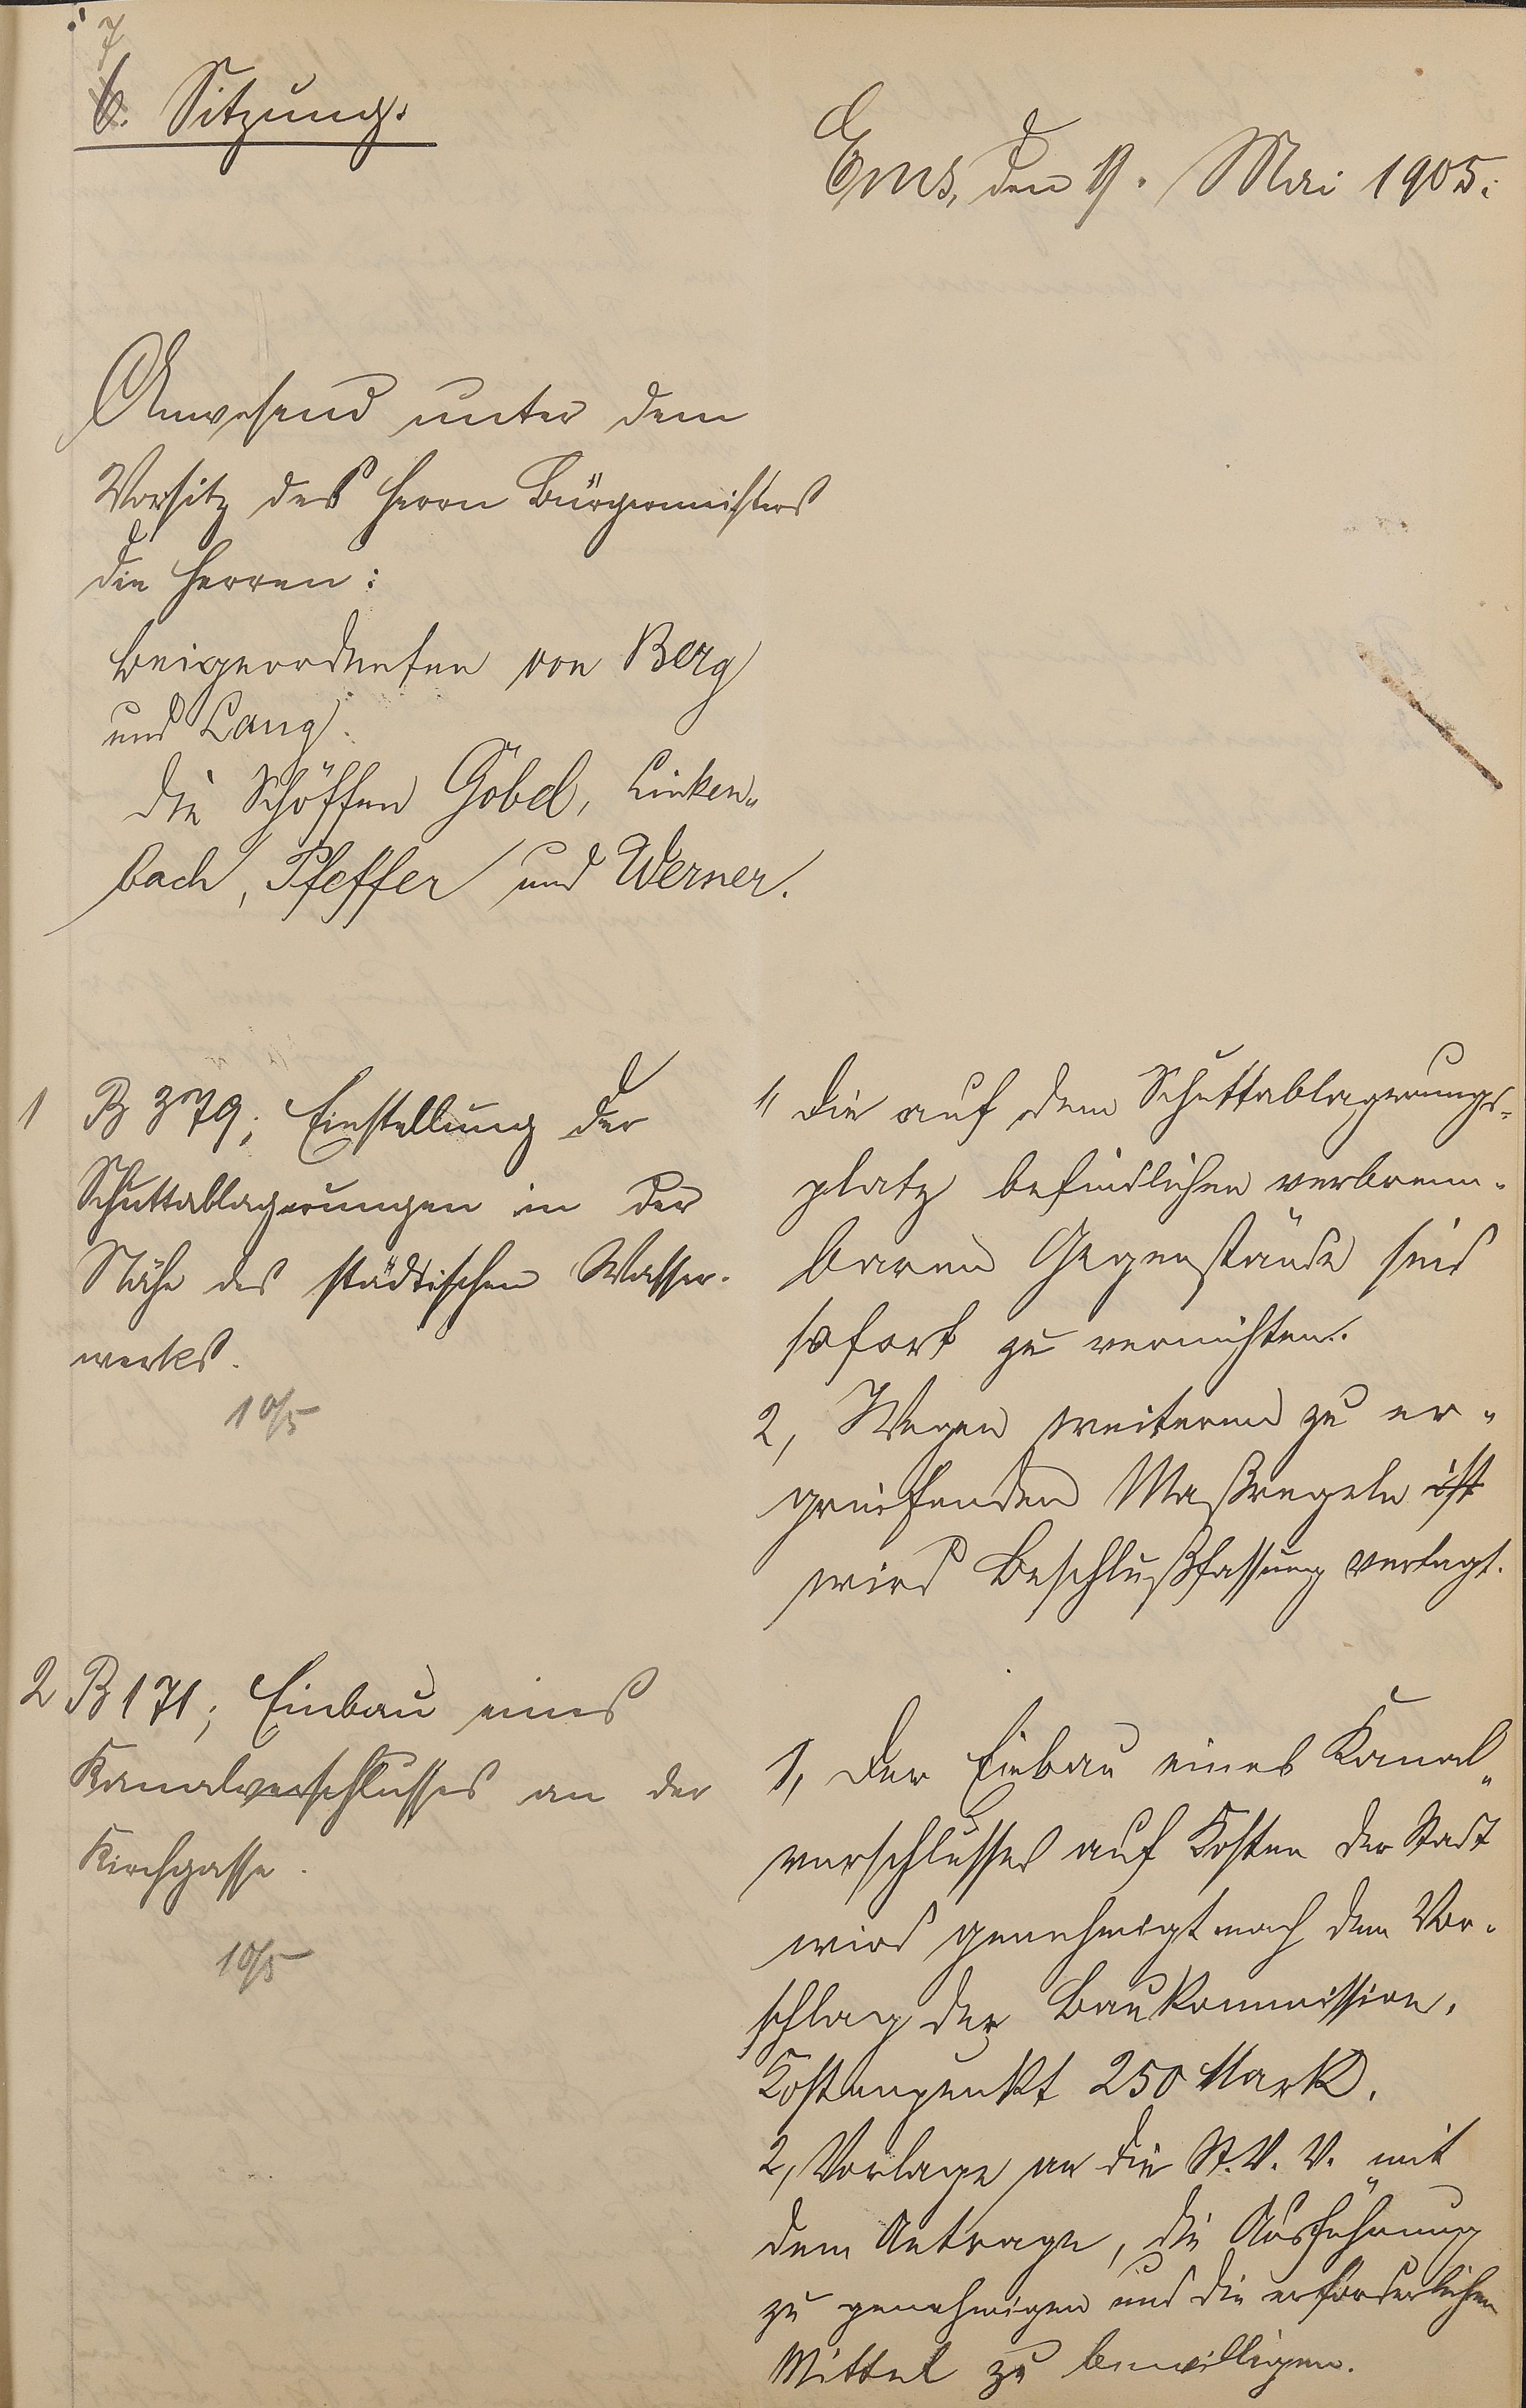 7
6. Sitzung.
Ems, den 9. Mai 1905.
Anwesend unter dem
Vorsitz des Herrn Bürgermeisters
die Herren:
Beigeordneten von Berg
und Lang.
Die Schöffen Göbel, Linken-
bach, Pfeffer und Werner.
1 B 379; Einstellung der
Schuttablagerungen in der
Nähe des städtischen Wasser-
werkes.
10/5
1, Die auf dem Schuttablagerungs-
platz befindlichen verbrenn-
baren Gegenstände sind
sofort zu vernichten.
2, Wegen weiterem zu er-
greifenden Maßregeln ist
wird Beschlußfassung vertagt.
2 B 171; Einbau eines
Kanalverschlusses an der
Kirchgasse.
10/5
1, Der Einbau eines Kanal-
verschlusses auf Kosten der Stadt
wird genehmigt nach dem Vor-
schlag der Baukommission.
Kostenpunkt 250 Mark.
2, Vorlage an die St. V. V. mit
dem Antrage, die Ausführung
zu genehmigen und die erforderlichen
Mittel zu bewilligen.